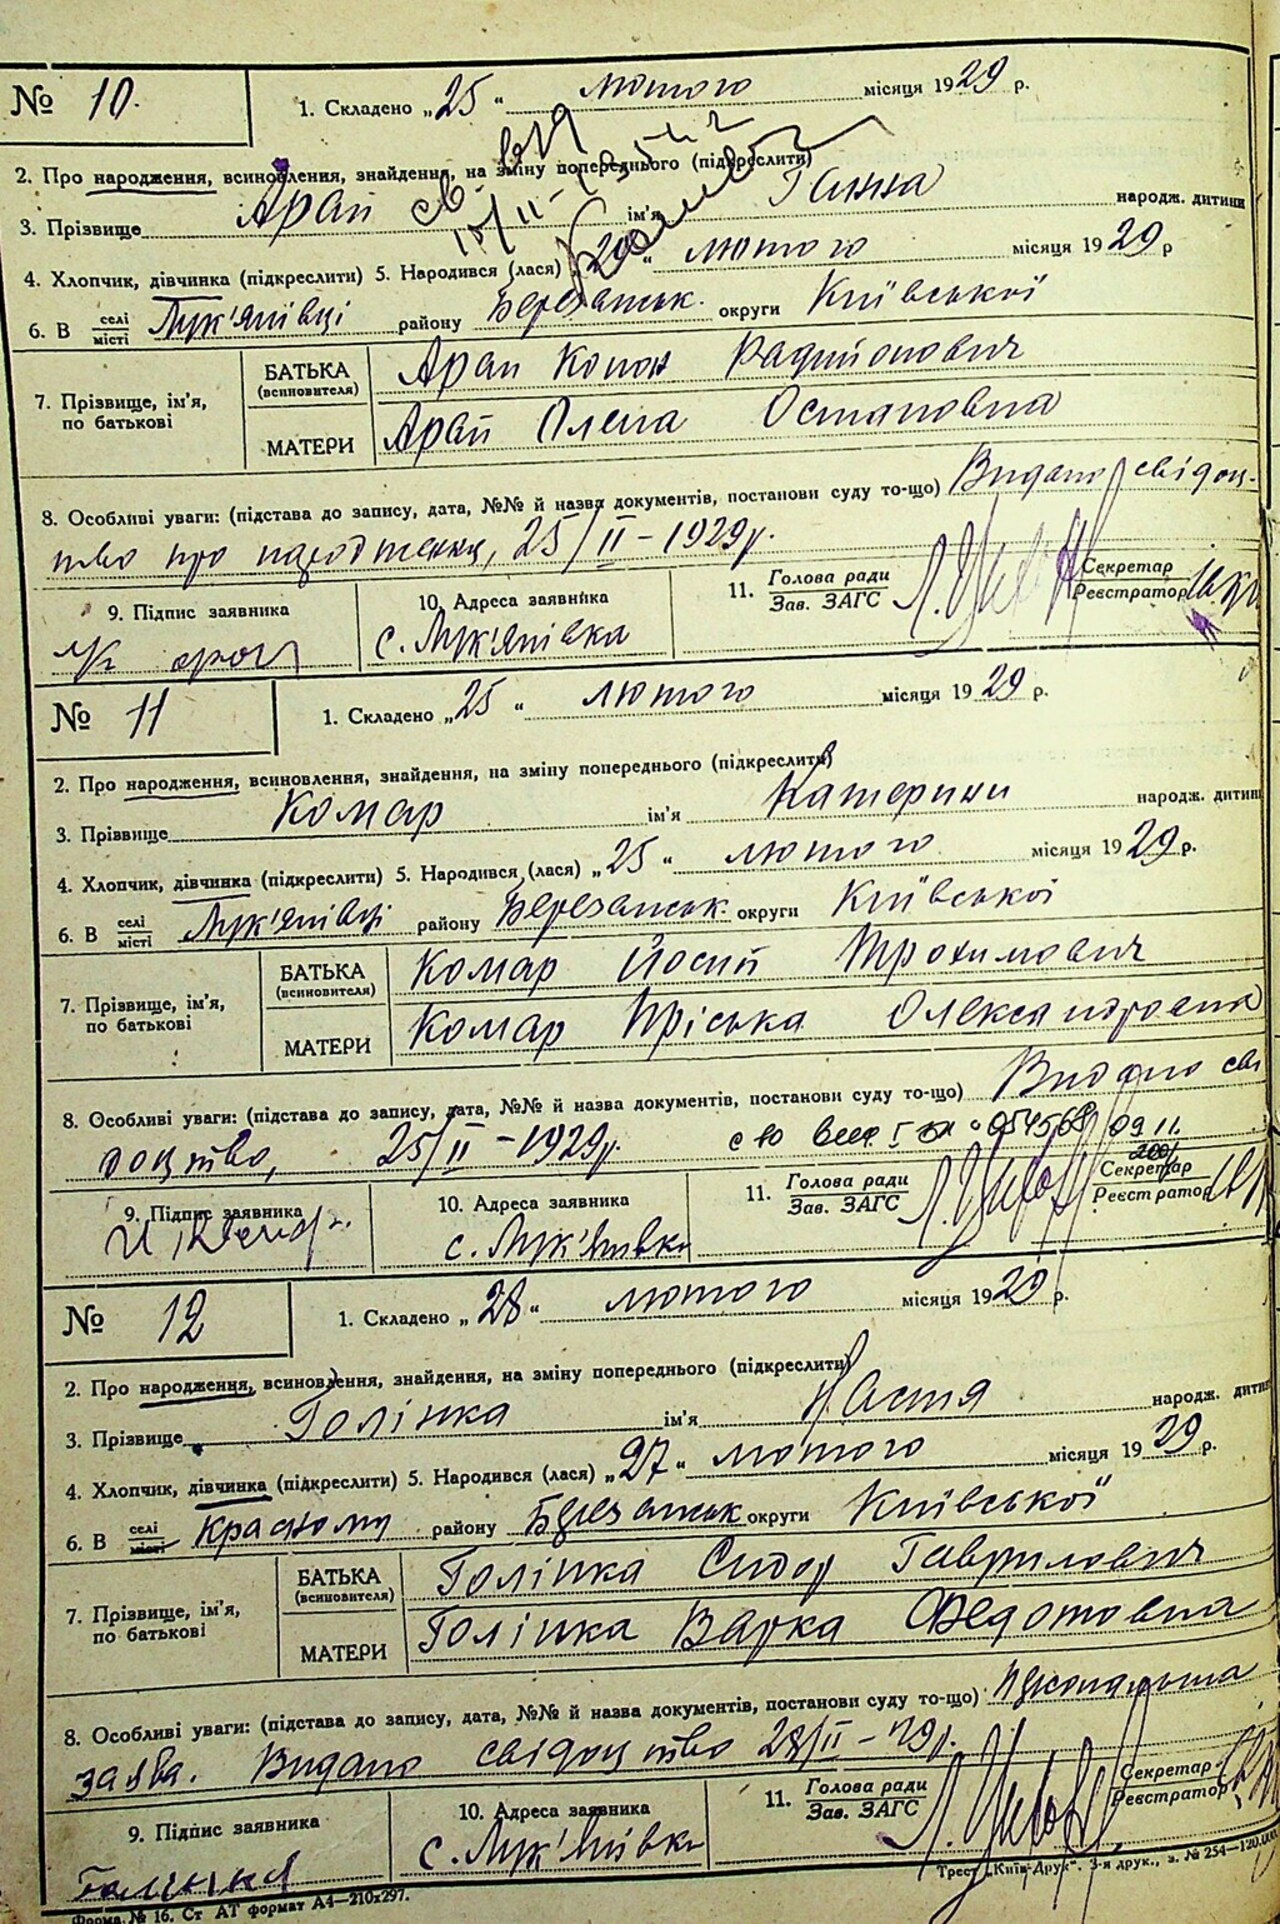 № 10. 1. Складено „25“ лютого місяця 1929 р.
2. Про народження, всиновлення, знайдення, на зміну попереднього (підкреслити)
3. Прізвище Арап ім'я Ганна народж. дитини
4. Хлопчик, дівчинка (підкреслити) 5. Народився (лася) „20“ лютого місяця 1929 р
6. В селі/місті Лук'янівці району Березанськ. округи Київської
7. Прізвище, ім'я, по батькові
БАТЬКА (всиновителя) Арап Конон Радийонович
МАТЕРИ Арап Олена Остаповна
8. Особливі уваги: (підстава до запису, дата, №№ й назва документів, постанови суду то-що) Видано свідоц-
тво про народження, 25/II – 1929р.
9. Підпис заявника 10. Адреса заявника 11. Голова ради/Зав. ЗАГС Секретар/Реєстратор
с. Лук'янівка
№ 11 1. Складено „25“ лютого місяця 1929 р.
2. Про народження, всиновлення, знайдення, на зміну попереднього (підкреслити)
3. Прізвище Комар ім'я Катерини народж. дитини
4. Хлопчик, дівчинка (підкреслити) 5. Народився (лася) „25“ лютого місяця 1929 р.
6. В селі/місті Лук'янівці району Березанськ. округи Київської
7. Прізвище, ім'я, по батькові
БАТЬКА (всиновителя) Комар Йосип Трохимович
МАТЕРИ Комар Пріська Олександровна
8. Особливі уваги: (підстава до запису, дата, №№ й назва документів, постанови суду то-що) Видано сві
доцтво, 25/II – 1929р.
9. Підпис заявника 10. Адреса заявника 11. Голова ради/Зав. ЗАГС Секретар/Реєстратор
с. Лук'янівка
№ 12 1. Складено „28“ лютого місяця 1929 р.
2. Про народження, всиновлення, знайдення, на зміну попереднього (підкреслити)
3. Прізвище Голінка ім'я Настя народж. дитини
4. Хлопчик, дівчинка (підкреслити) 5. Народився (лася) „27“ лютого місяця 1929 р.
6. В селі/місті Красному району Березанськ округи Київської
7. Прізвище, ім'я, по батькові
БАТЬКА (всиновителя) Голінка Сидор Гаврилович
МАТЕРИ Голінка Варка Федотовна
8. Особливі уваги: (підстава до запису, дата, №№ й назва документів, постанови суду то-що)
заява. Видано свідоцтво 28/II – 29р.
9. Підпис заявника 10. Адреса заявника 11. Голова ради/Зав. ЗАГС Секретар/Реєстратор
с. Лук'янівка
Форма № 16. Ст АТ формат А4—210х297. Трест „Київ-Друк“. 3-я друк., з. № 254—120.000